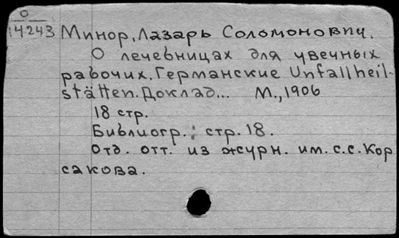 О
14243
Минор, Лазарь Соломонович.
О лечебницах для увечных
рабочих. Германские Unfallheil-
stätten. Доклад... М., 1906
18 стр.
Библиогр.: стр. 18.
Отд. отт. из журн. им. с.с. Кор
сакова.